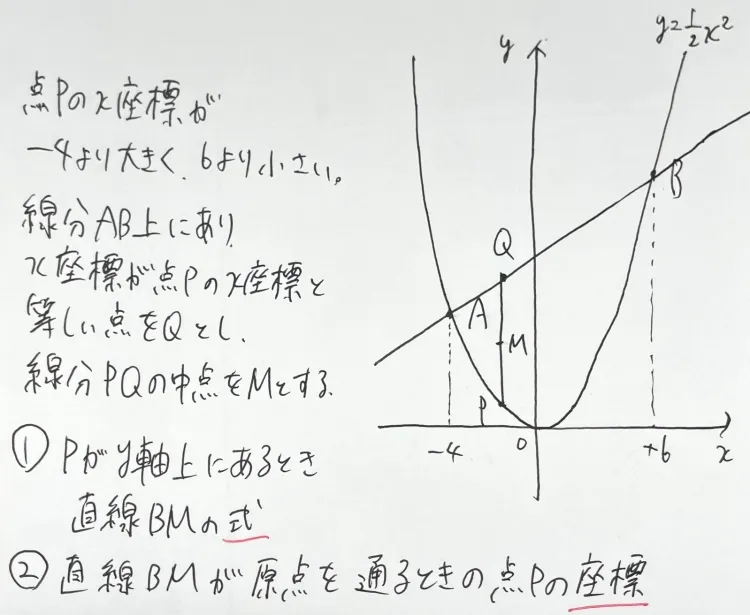 点Pのx座標が
-4より大きく、6より小さい。
線分AB上にあり
x座標が点Pのx座標と
等しい点をQとし、
線分PQの中点をMとする。
① Pがy軸上にあるとき
直線BMの式
② 直線BMが原点を通るときの点Pの座標
y=1/2x²
y
B
Q
A
M
P
-4
0
+6
x